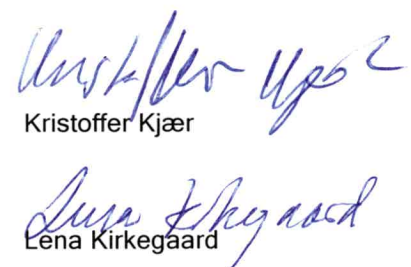 Kristoffer Kjær
Kristoffer Kjær
Lena Kirkegaard
Lena Kirkegaard